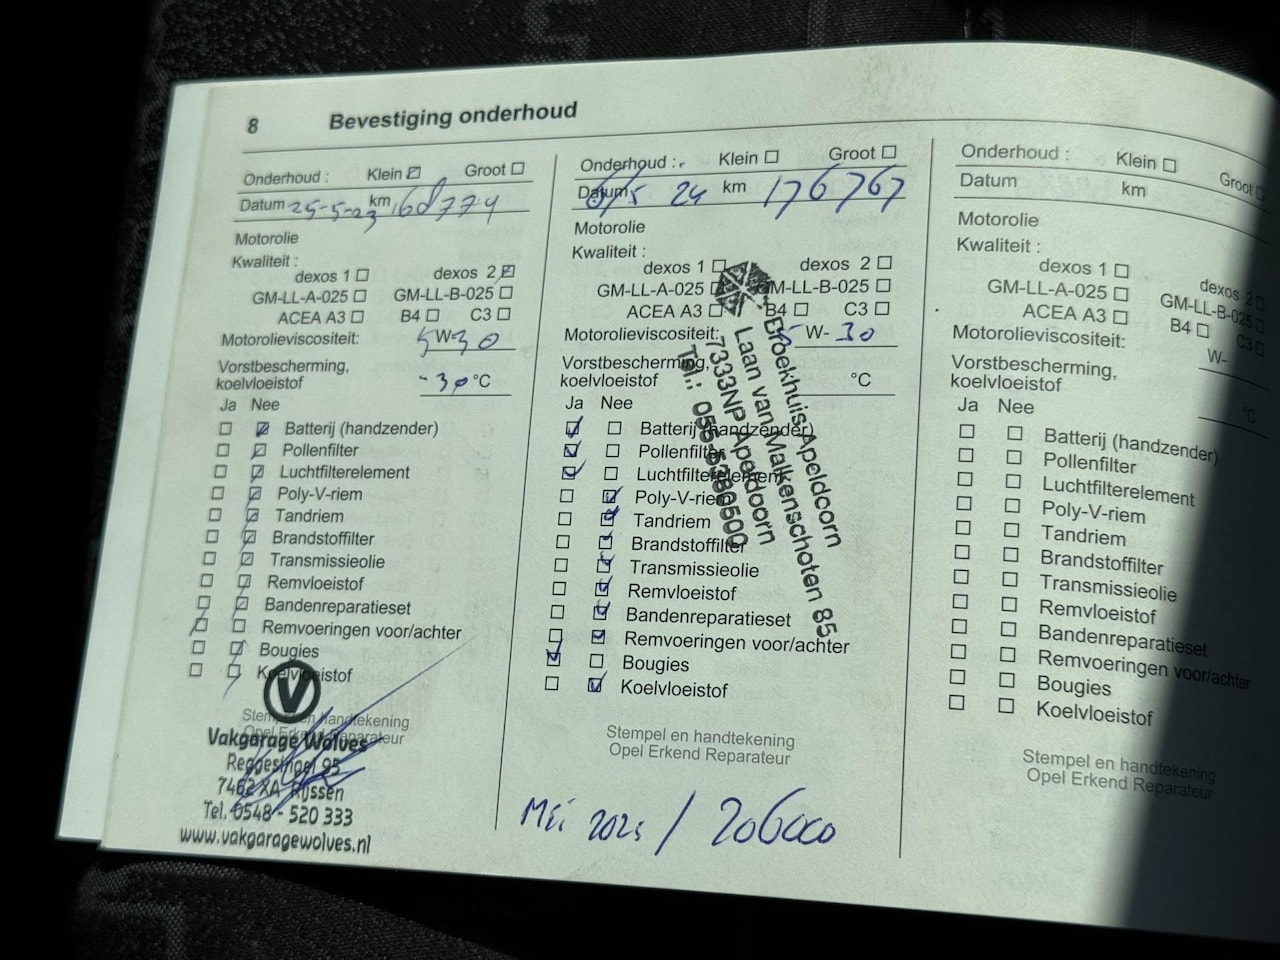 8 Bevestiging onderhoud
Onderhoud : Klein ☑ Groot ☐
Datum 25-5-23 km 168774
Motorolie
Kwaliteit :
dexos 1 ☐ dexos 2 ☑
GM-LL-A-025 ☐ GM-LL-B-025 ☐
ACEA A3 ☐ B4 ☐ C3 ☐
Motorolieviscositeit: 5 W- 30
Vorstbescherming,
koelvloeistof -30 °C
Ja Nee
☐ ☑ Batterij (handzender)
☐ ☑ Pollenfilter
☐ ☑ Luchtfilterelement
☐ ☑ Poly-V-riem
☐ ☑ Tandriem
☐ ☑ Brandstoffilter
☐ ☑ Transmissieolie
☐ ☑ Remvloeistof
☐ ☑ Bandenreparatieset
☑ ☐ Remvoeringen voor/achter
☐ ☑ Bougies
☐ ☑ Koelvloeistof
Stempel en handtekening
Opel Erkend Reparateur
V
Vakgarage Wolves
Reggesingel 95
7462 XA Rijssen
Tel. 0548 - 520 333
www.vakgaragewolves.nl
Onderhoud : Klein ☐ Groot ☐
Datum /5 24 km 176767
Motorolie
Kwaliteit :
dexos 1 ☐ dexos 2 ☐
GM-LL-A-025 ☐ GM-LL-B-025 ☐
ACEA A3 ☐ B4 ☐ C3 ☐
Motorolieviscositeit: 5 W- 30
Vorstbescherming,
koelvloeistof °C
Ja Nee
☑ ☐ Batterij (handzender)
☑ ☐ Pollenfilter
☑ ☐ Luchtfilterelement
☐ ☑ Poly-V-riem
☐ ☑ Tandriem
☐ ☑ Brandstoffilter
☐ ☑ Transmissieolie
☐ ☑ Remvloeistof
☐ ☑ Bandenreparatieset
☐ ☑ Remvoeringen voor/achter
☑ ☐ Bougies
☐ ☑ Koelvloeistof
Broekhuis Apeldoorn
Laan van Malkenschoten 85
7333NP Apeldoorn
Tel.: 055-5380500
Stempel en handtekening
Opel Erkend Reparateur
Mei 2025 / 206000
Onderhoud : Klein ☐ Groot ☐
Datum km
Motorolie
Kwaliteit :
dexos 1 ☐ dexos 2 ☐
GM-LL-A-025 ☐ GM-LL-B-025 ☐
ACEA A3 ☐ B4 ☐ C3 ☐
Motorolieviscositeit: W-
Vorstbescherming,
koelvloeistof °C
Ja Nee
☐ ☐ Batterij (handzender)
☐ ☐ Pollenfilter
☐ ☐ Luchtfilterelement
☐ ☐ Poly-V-riem
☐ ☐ Tandriem
☐ ☐ Brandstoffilter
☐ ☐ Transmissieolie
☐ ☐ Remvloeistof
☐ ☐ Bandenreparatieset
☐ ☐ Remvoeringen voor/achter
☐ ☐ Bougies
☐ ☐ Koelvloeistof
Stempel en handtekening
Opel Erkend Reparateur